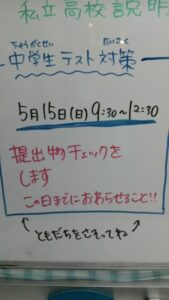 私立高校説明
ちゅうがくせい たいさく
中学生テスト対策
5月15日(日) 9:30〜12:30
提出物チェックを
します
この日までにおわらせること!!
ともだちをさそってね